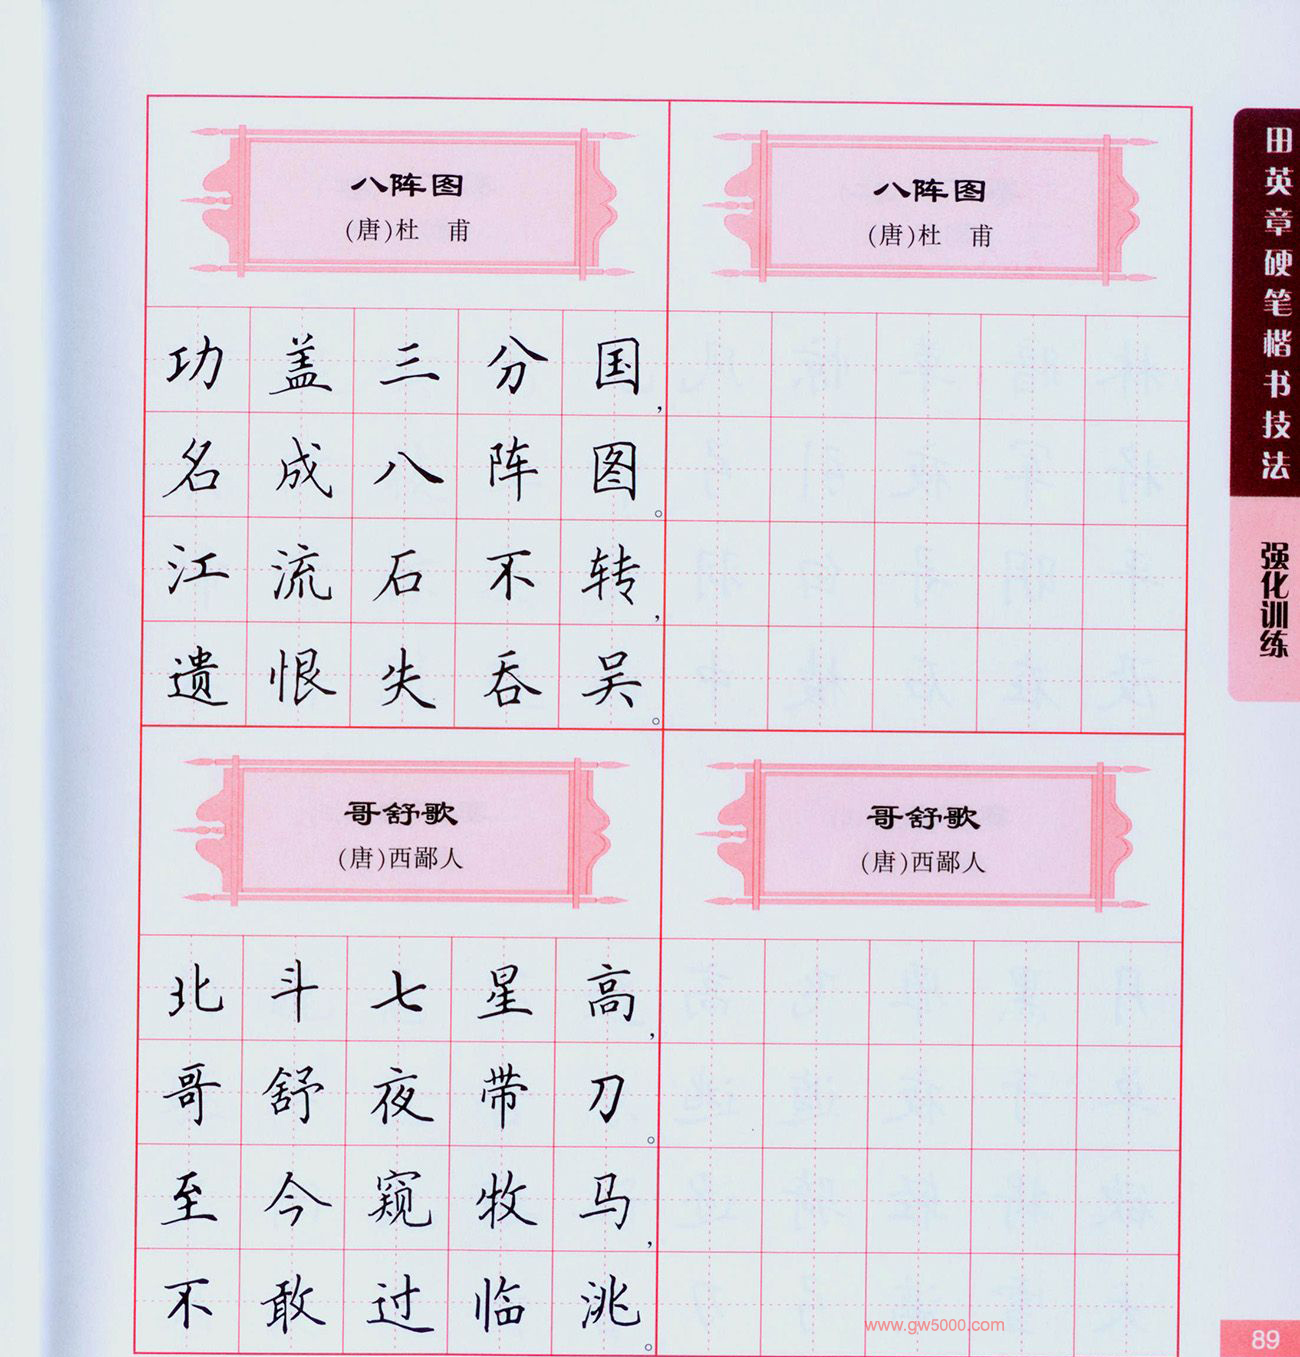 八阵图
(唐)杜 甫
功盖三分国,
名成八阵图。
江流石不转,
遗恨失吞吴。
八阵图
(唐)杜 甫
哥舒歌
(唐)西鄙人
北斗七星高,
哥舒夜带刀。
至今窥牧马,
不敢过临洮。
哥舒歌
(唐)西鄙人
田英章硬笔楷书技法
强化训练
www.gw5000.com
89